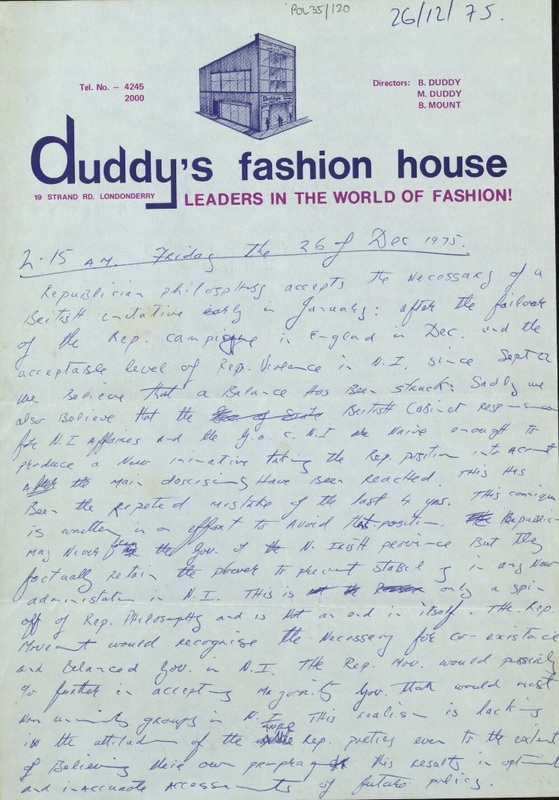 POL35/120
26/12/75.
Tel. No. – 4245
2000
Directors: B. DUDDY
M. DUDDY
B. MOUNT
duddy's fashion house
19 STRAND RD. LONDONDERRY
LEADERS IN THE WORLD OF FASHION!
2.15 AM. Friday the 26 of Dec 1975.
Republician philosphy accepts the Necessary of a
British initative early in January: after the failour
of the Rep. campaign in England in Dec. and the
acceptable level of Rep. Violence in N.I. since Sept
we Believe that a Balance has Been struck: Sadly we
also Believe that the British Cabinet
for N.I affaires and the G.O.C. N.I are Naive enough to
produce a New iniative taking the Rep. position into account
after the main descisions Have been reached. This Has
Been the repeted mistake of the last 4 yrs. This
is written in a effort to Avoid that position. Republic
may Never the Gov. of the N. Irish province But they
factually retain the power to prevent stability in any New
administration in N.I. This is only a spin
off of Rep. Philosophy and is Not an end in itself. The Rep.
Movement would recognise the Necessary for co-existance
and Balanced Gov. in N.I. The Rep. Mov. would possibly
go further in accepting Majority Gov. that would most
minority groups in N.I. This realism is lacking
in the attitude of the some Rep. parties even to the extent
of Believing their own this results in
and inaccurate accessments of future policy.